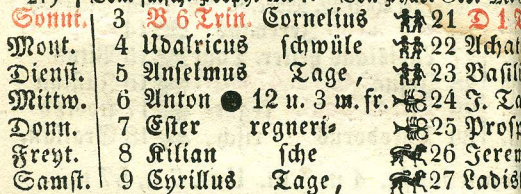 Sonnt. 3 B 6 Trin. Cornelius 21 D 1
Mont. 4 Udalricus schwüle 22 Achat
Dienst. 5 Anselmus Tage, 23 Basili
Mittw. 6 Anton ● 12 u. 3 m. fr. 24 J. Ta
Donn. 7 Ester regneri⸗ 25 Prosp
Freyt. 8 Kilian sche 26 Jerem
Samst. 9 Cyrillus Tage, 27 Ladis